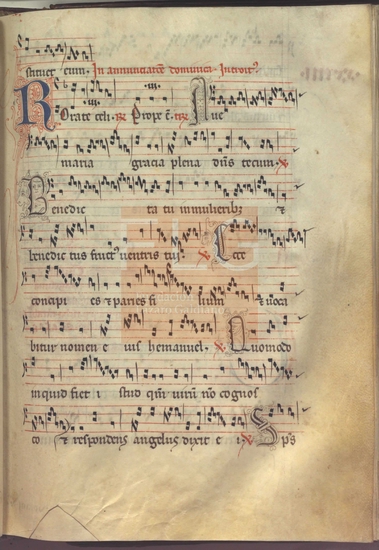 In annunciatione dominica. Introit.
Rorate celi. Aue
maria gracia plena dns tecum.
Benedic ta tu in mulierib; &
benedic tus fruct ventris tui. Ecce
concipi es & paries fi lium & uoca
bitur nomen e ius hemanuel. Quomodo
inquid fiet istud qm uirū nō cognos
co & respondens angelus dixit e i. Sps